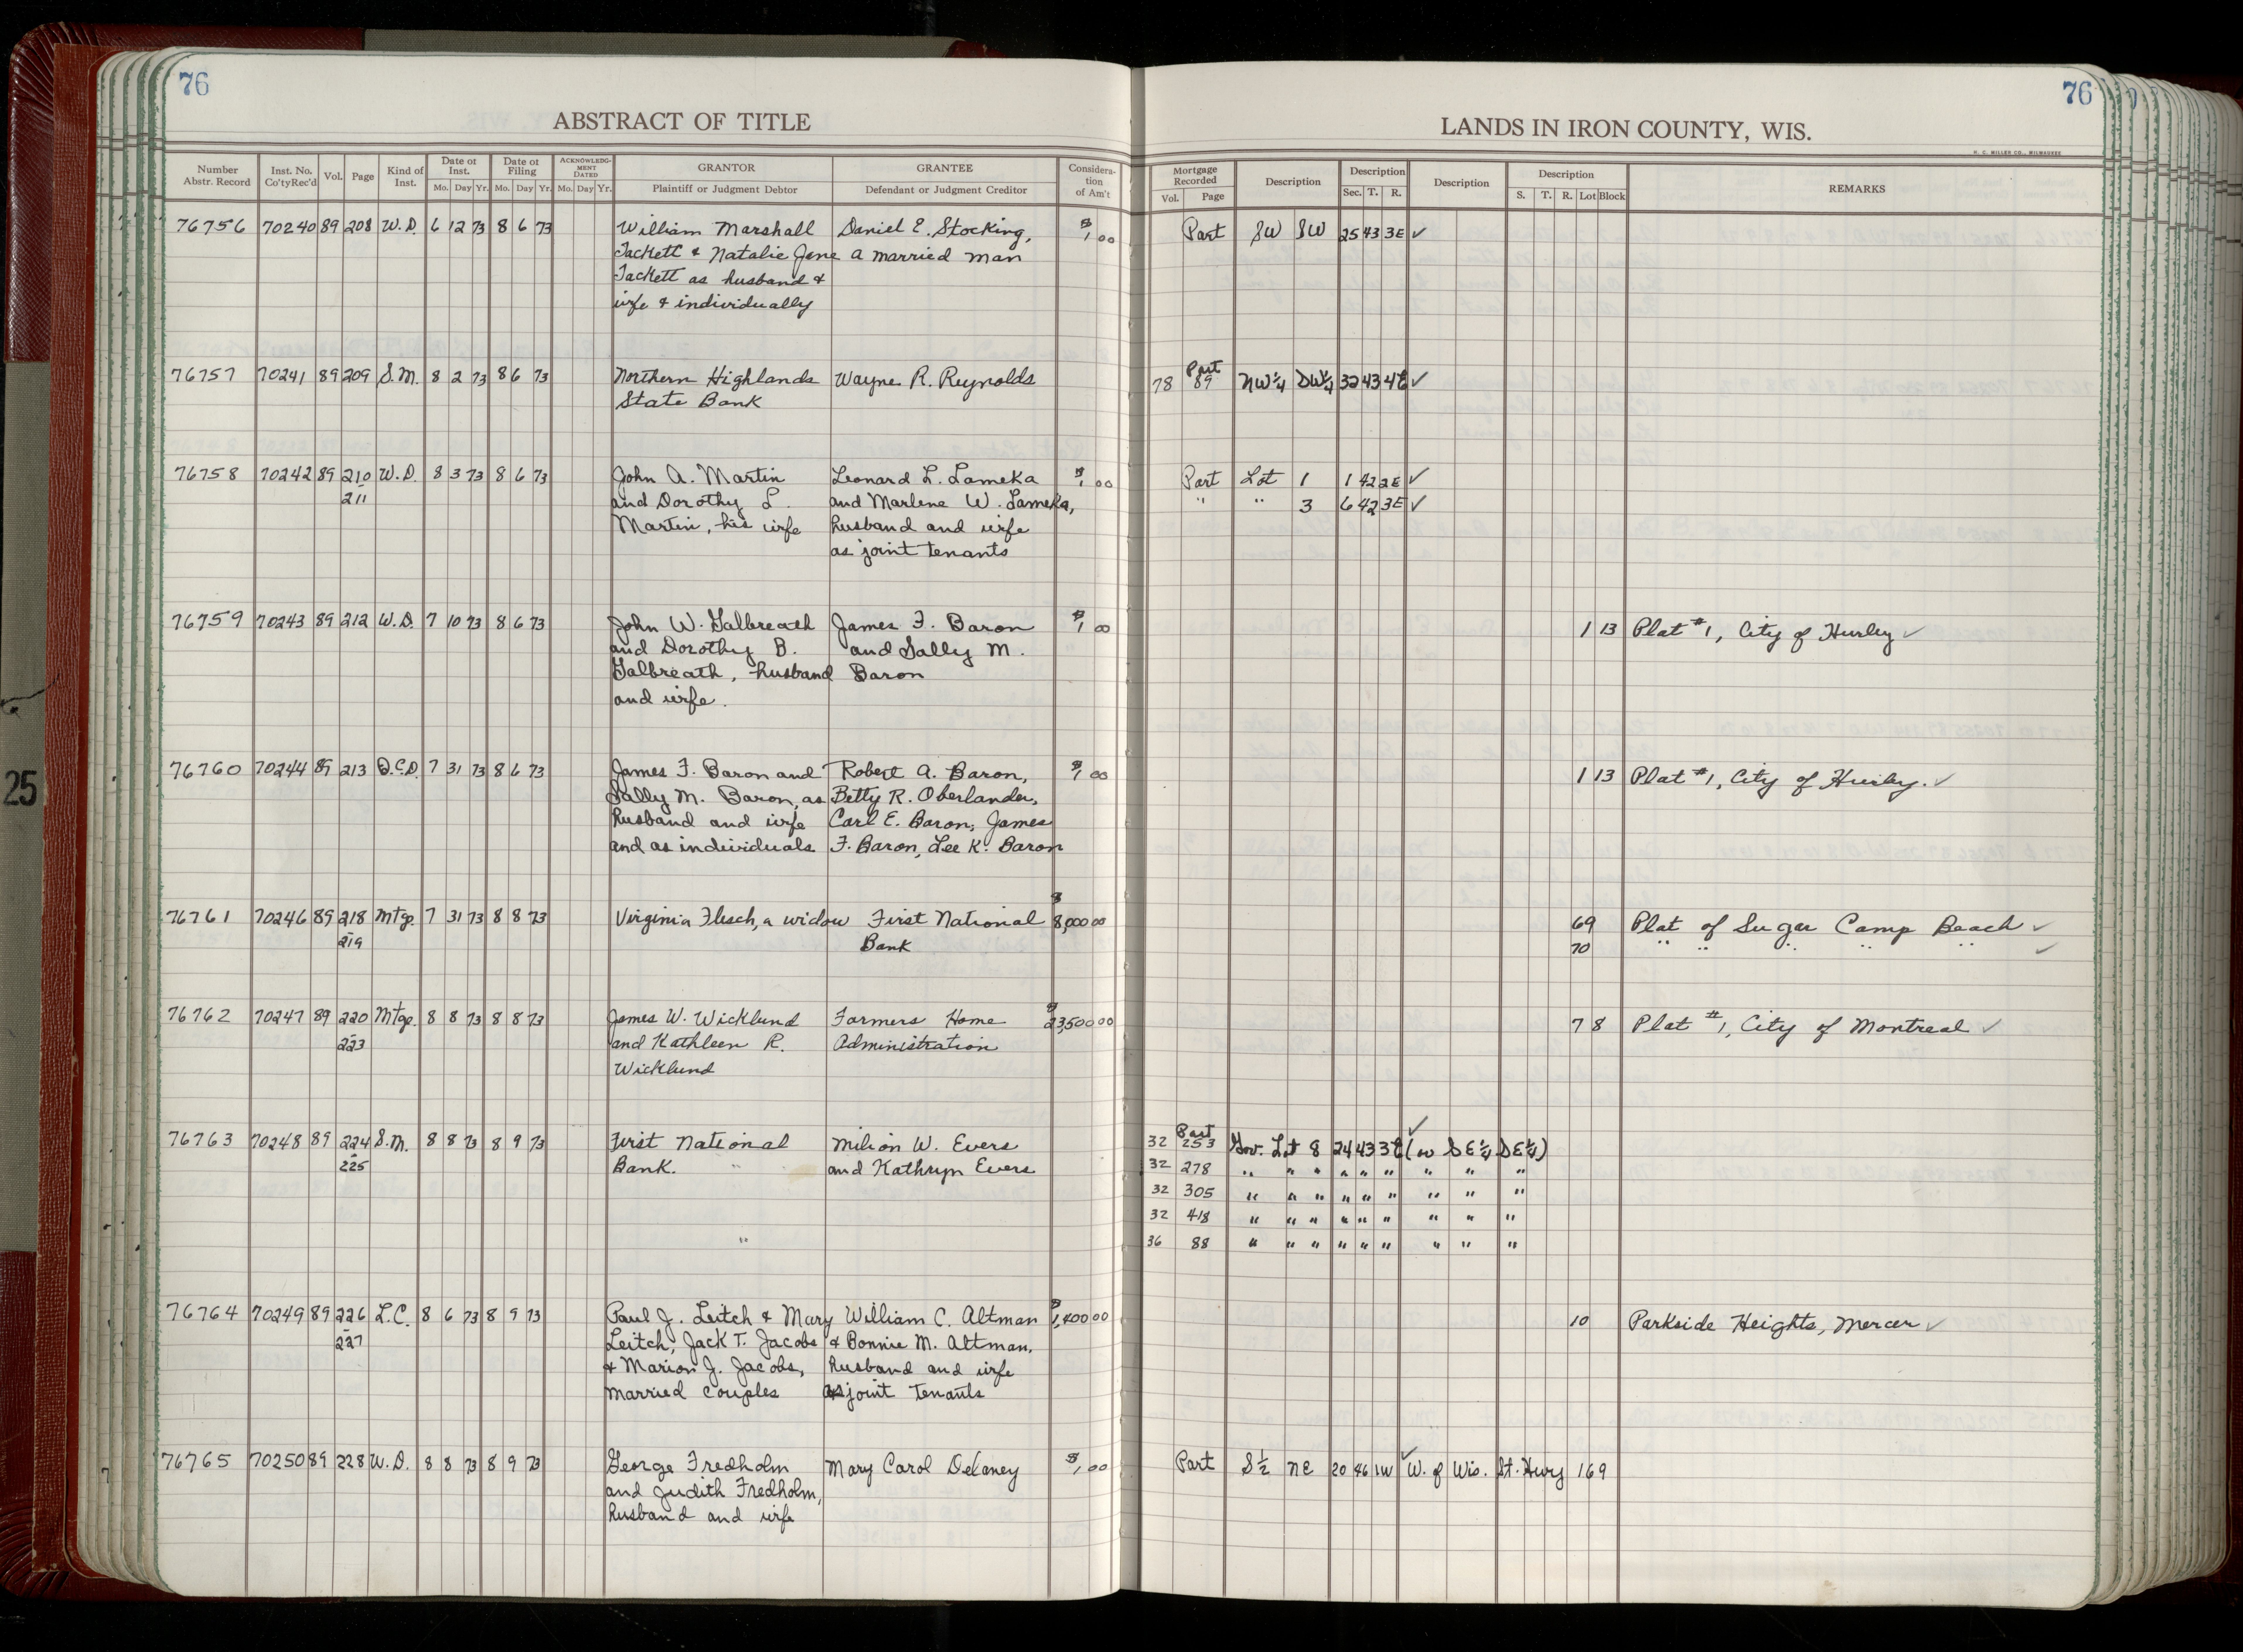 76
76
ABSTRACT OF TITLE
LANDS IN IRON COUNTY, WIS.
H. C. MILLER CO., MILWAUKEE
Number Abstr. Record
Inst. No. Co'ty Rec'd
Vol.
Page
Kind of Inst.
Date of Inst. Mo. Day Yr.
Date of Filing Mo. Day Yr.
ACKNOWLEDGMENT DATED Mo. Day Yr.
GRANTOR Plaintiff or Judgment Debtor
GRANTEE Defendant or Judgment Creditor
Consideration of Am't
Mortgage Recorded Vol. Page
Description
Description Sec. T. R.
Description
Description S. T. R. Lot Block
REMARKS
76756 70240 89 208 W.D. 6 12 73 8 6 73 William Marshall Daniel E. Stocking, $1 00 Part SW SW 25 43 3E ✓
Tackett & Natalie Jene a married man
Tackett as husband &
wife & individually
Part
76757 70241 89 209 S.M. 8 2 73 8 6 73 Northern Highlands Wayne R. Reynolds 78 89 NW¼ SW¼ 32 43 4E ✓
State Bank
76758 70242 89 210 W.D. 8 3 73 8 6 73 John A. Martin Leonard L. Lameka $1 00 Part Lot 1 1 42 2E ✓
- 211 and Dorothy L. and Marlene W. Lameka, " " 3 6 42 3E ✓
Martin, his wife husband and wife
as joint tenants
76759 70243 89 212 W.D. 7 10 73 8 6 73 John W. Galbreath James F. Baron $1 00 1 13 Plat #1, City of Hurley ✓
and Dorothy B. and Sally M.
Galbreath, husband Baron
and wife.
76760 70244 89 213 Q.C.D. 7 31 73 8 6 73 James F. Baron and Robert A. Baron, $1 00 1 13 Plat #1, City of Hurley. ✓
Sally M. Baron, as Betty R. Oberlander,
husband and wife Carl E. Baron, James
and as individuals F. Baron, Lee K. Baron
76761 70246 89 218 Mtge. 7 31 73 8 8 73 Virginia Flesch, a widow First National $8,000 00 69 Plat of Sugar Camp Beach ✓
- 219 Bank 70 " " " " " ✓
76762 70247 89 220 Mtge. 8 8 73 8 8 73 James W. Wicklund Farmers Home $23,500 00 7 8 Plat #1, City of Montreal ✓
- 223 and Kathleen R. Administration
Wicklund
Part
76763 70248 89 224 S.M. 8 8 73 8 9 73 First National Milion W. Evers 32 253 Gov. Lot 8 24 43 3E ✓ (or SE¼ SE¼)
- 225 Bank. " and Kathryn Evers 32 278 " " " " " " " " "
32 305 " " " " " " " " "
32 418 " " " " " " " " "
" 36 88 " " " " " " " " "
76764 70249 89 226 L.C. 8 6 73 8 9 73 Paul J. Leitch & Mary William C. Altman $1,400 00 10 Parkside Heights, Mercer ✓
- 227 Leitch, Jack T. Jacobs & Bonnie M. Altman,
& Marion J. Jacobs, husband and wife
married couples as joint tenants
76765 70250 89 228 W.D. 8 8 73 8 9 73 George Fredholm Mary Carol Delaney $1 00 Part S½ NE 20 46 1W ✓ W. of Wis. St. Hwy 169
and Judith Fredholm,
husband and wife
25